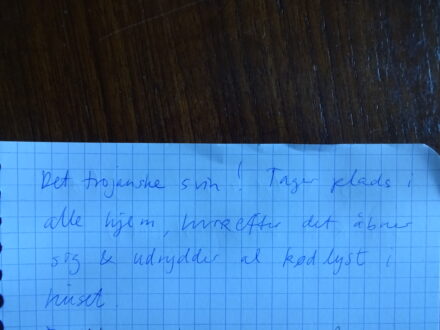 Det trojanske svin! Tager plads i
alle hjem, hvorefter det åbner
sig & udrydder al kødlyst i
huset.